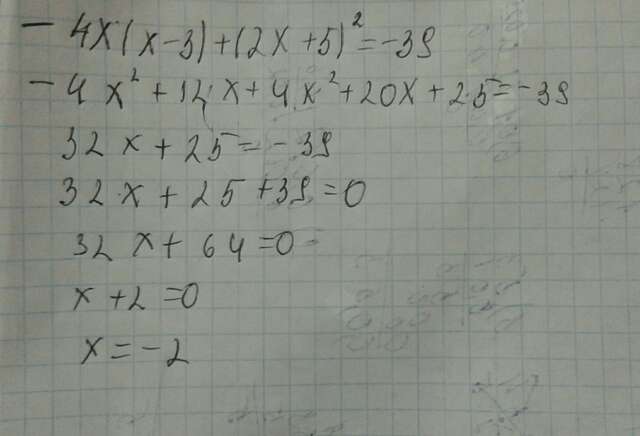 - 4x(x-3)+(2x+5)²=-39
- 4x²+12x+4x²+20x+25=-39
32x+25=-39
32x+25+39=0
32x+64=0
x+2=0
x=-2